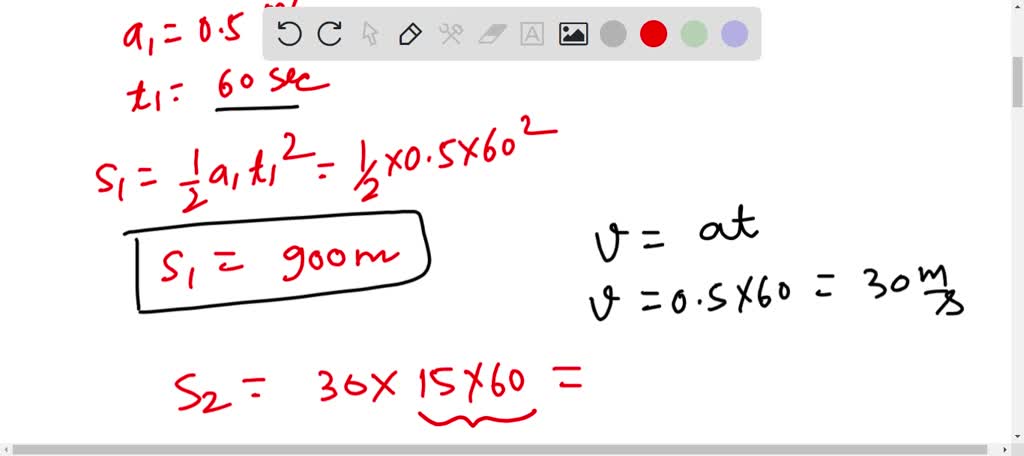 a₁ = 0.5
t₁ = 60 sec
s₁ = 1/2 a₁ t₁² = 1/2 × 0.5 × 60²
s₁ = 900m
v = at
v = 0.5 × 60 = 30 m/s
S₂ = 30 × 15 × 60 =